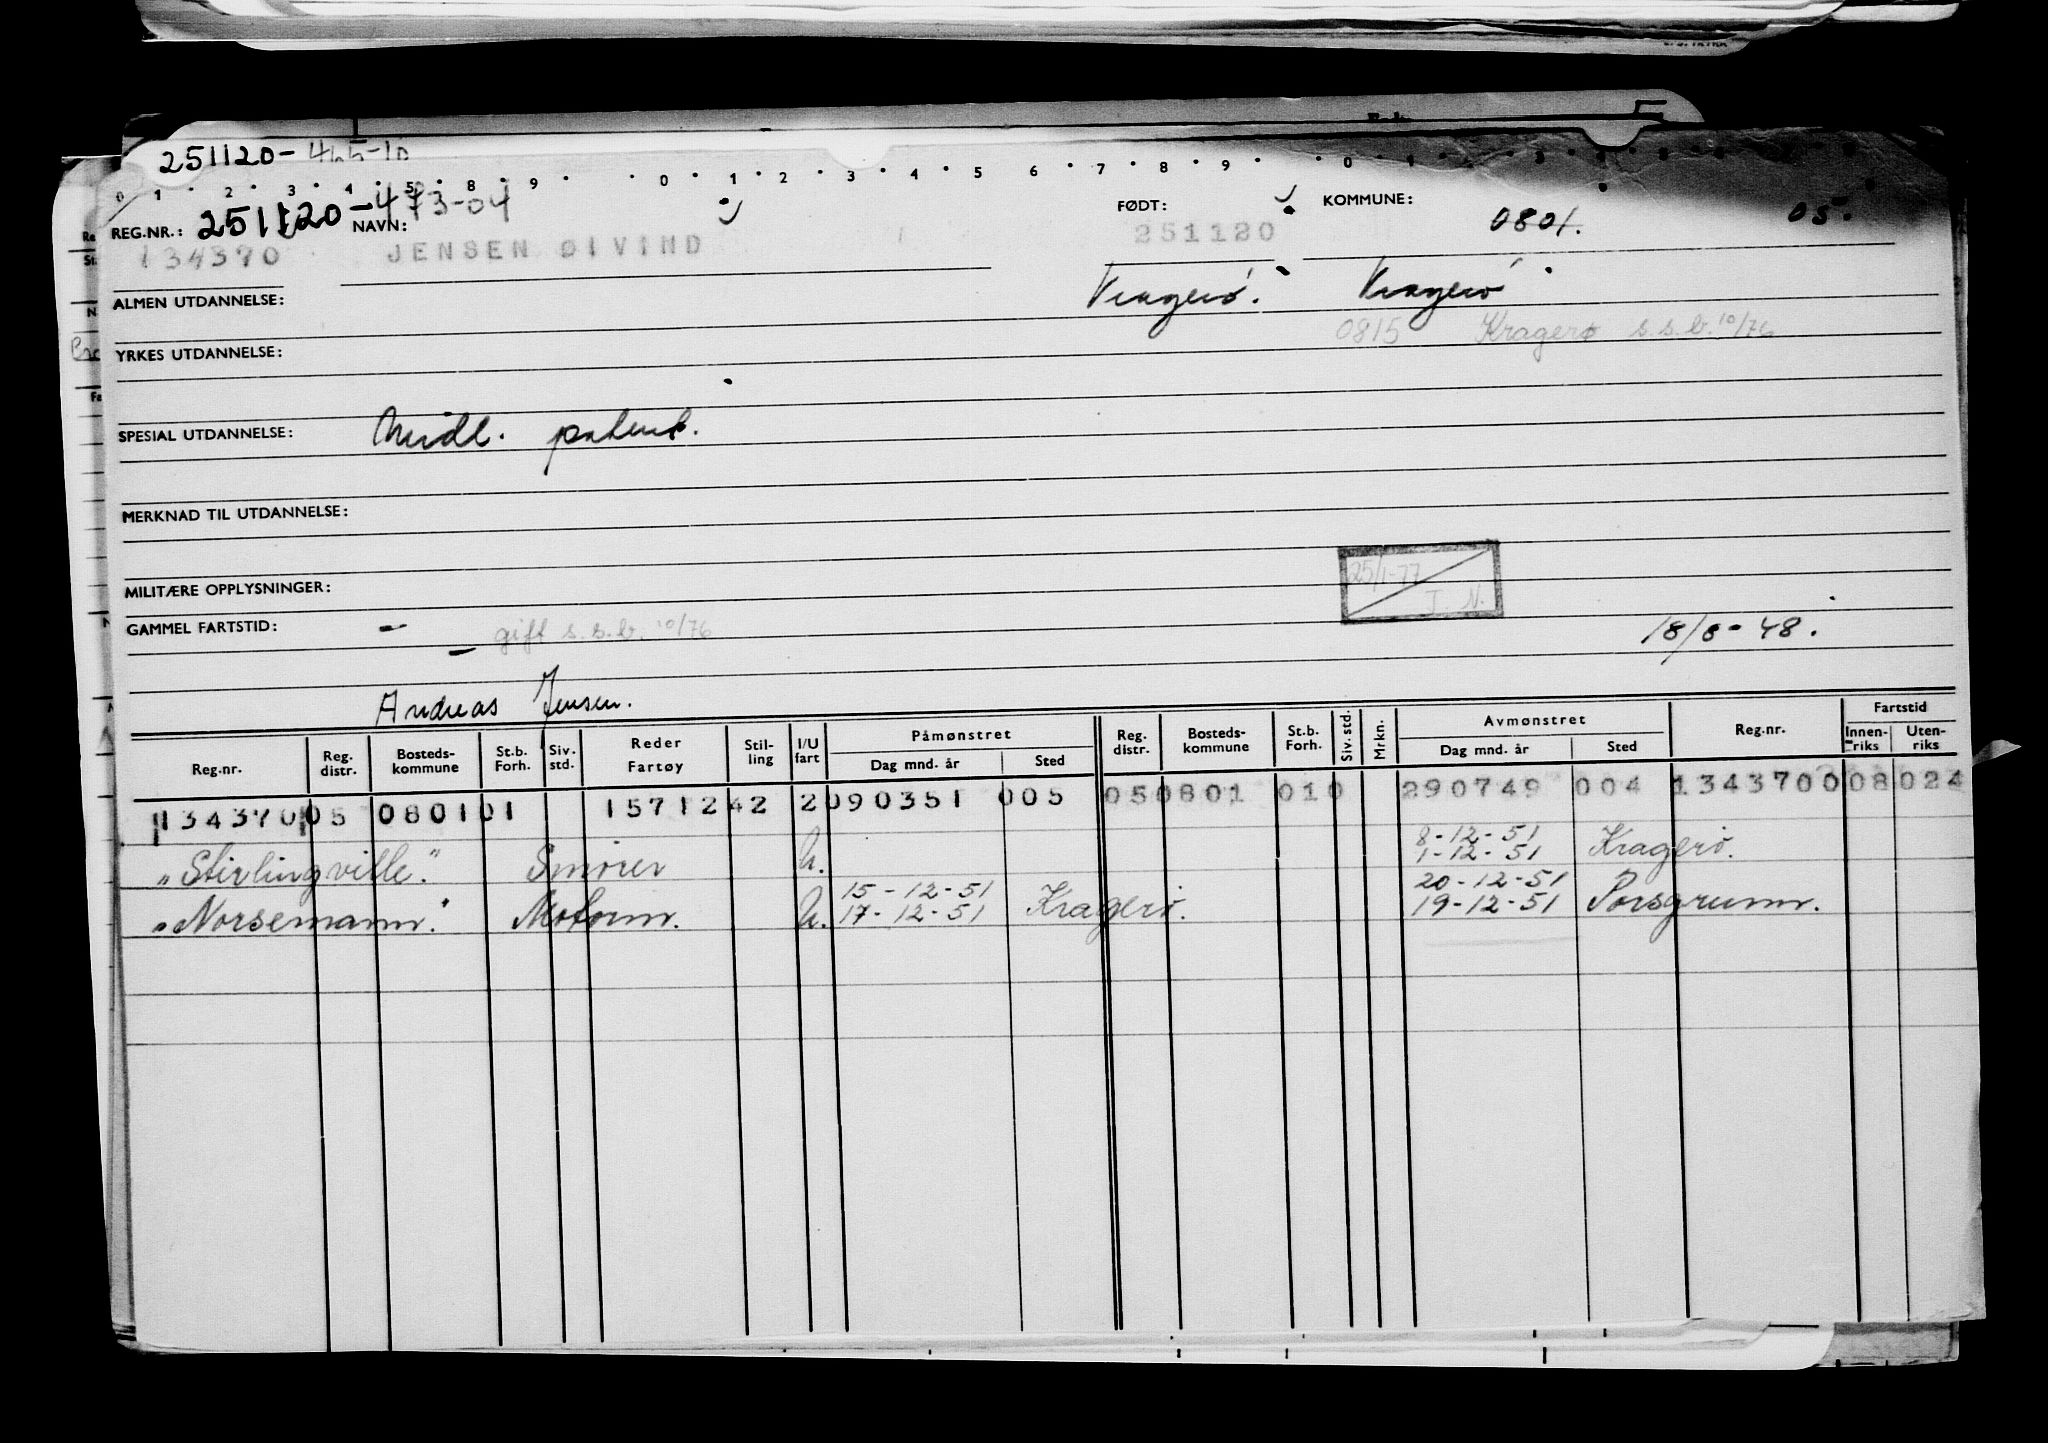 251120-465-10
0 1 2 3 4 5 8 9 0 1 2 3 4 5 6 7 8 9 0 1
REG.NR.: 251120-473-04 NAVN: FØDT: KOMMUNE: 0801. 05.
134370 JENSEN ØIVIND 251120
ALMEN UTDANNELSE: Kragerø. Kragerø
0815 Kragerø s.s.b. 10/76
YRKES UTDANNELSE:
SPESIAL UTDANNELSE: Midl. patent.
MERKNAD TIL UTDANNELSE:
25/1-77
J N.
MILITÆRE OPPLYSNINGER:
GAMMEL FARTSTID: -
- gift s.s.b. 10/76 18/8-48.
Andreas Jensen.
Reg.nr. Reg. distr. Bosteds- kommune St.b. Forh. Siv. std. Reder Fartøy Stil- ling I/U fart Påmønstret Dag mnd. år Sted Reg. distr. Bosteds- kommune St.b. Forh. Siv. std. Mrkn. Avmønstret Dag mnd. år Sted Reg.nr. Fartstid Innen- riks Uten- riks
134370 05 0801 01 157124 2 2 090351 005 05 0801 010 290749 004 134370 0 08 024
8-12-51
"Stirlingville." Smører U. 1-12-51 Kragerø.
15-12-51 20-12-51
"Norsemann." Motorm. U. 17-12-51 Kragerø. 19-12-51 Porsgrunn.